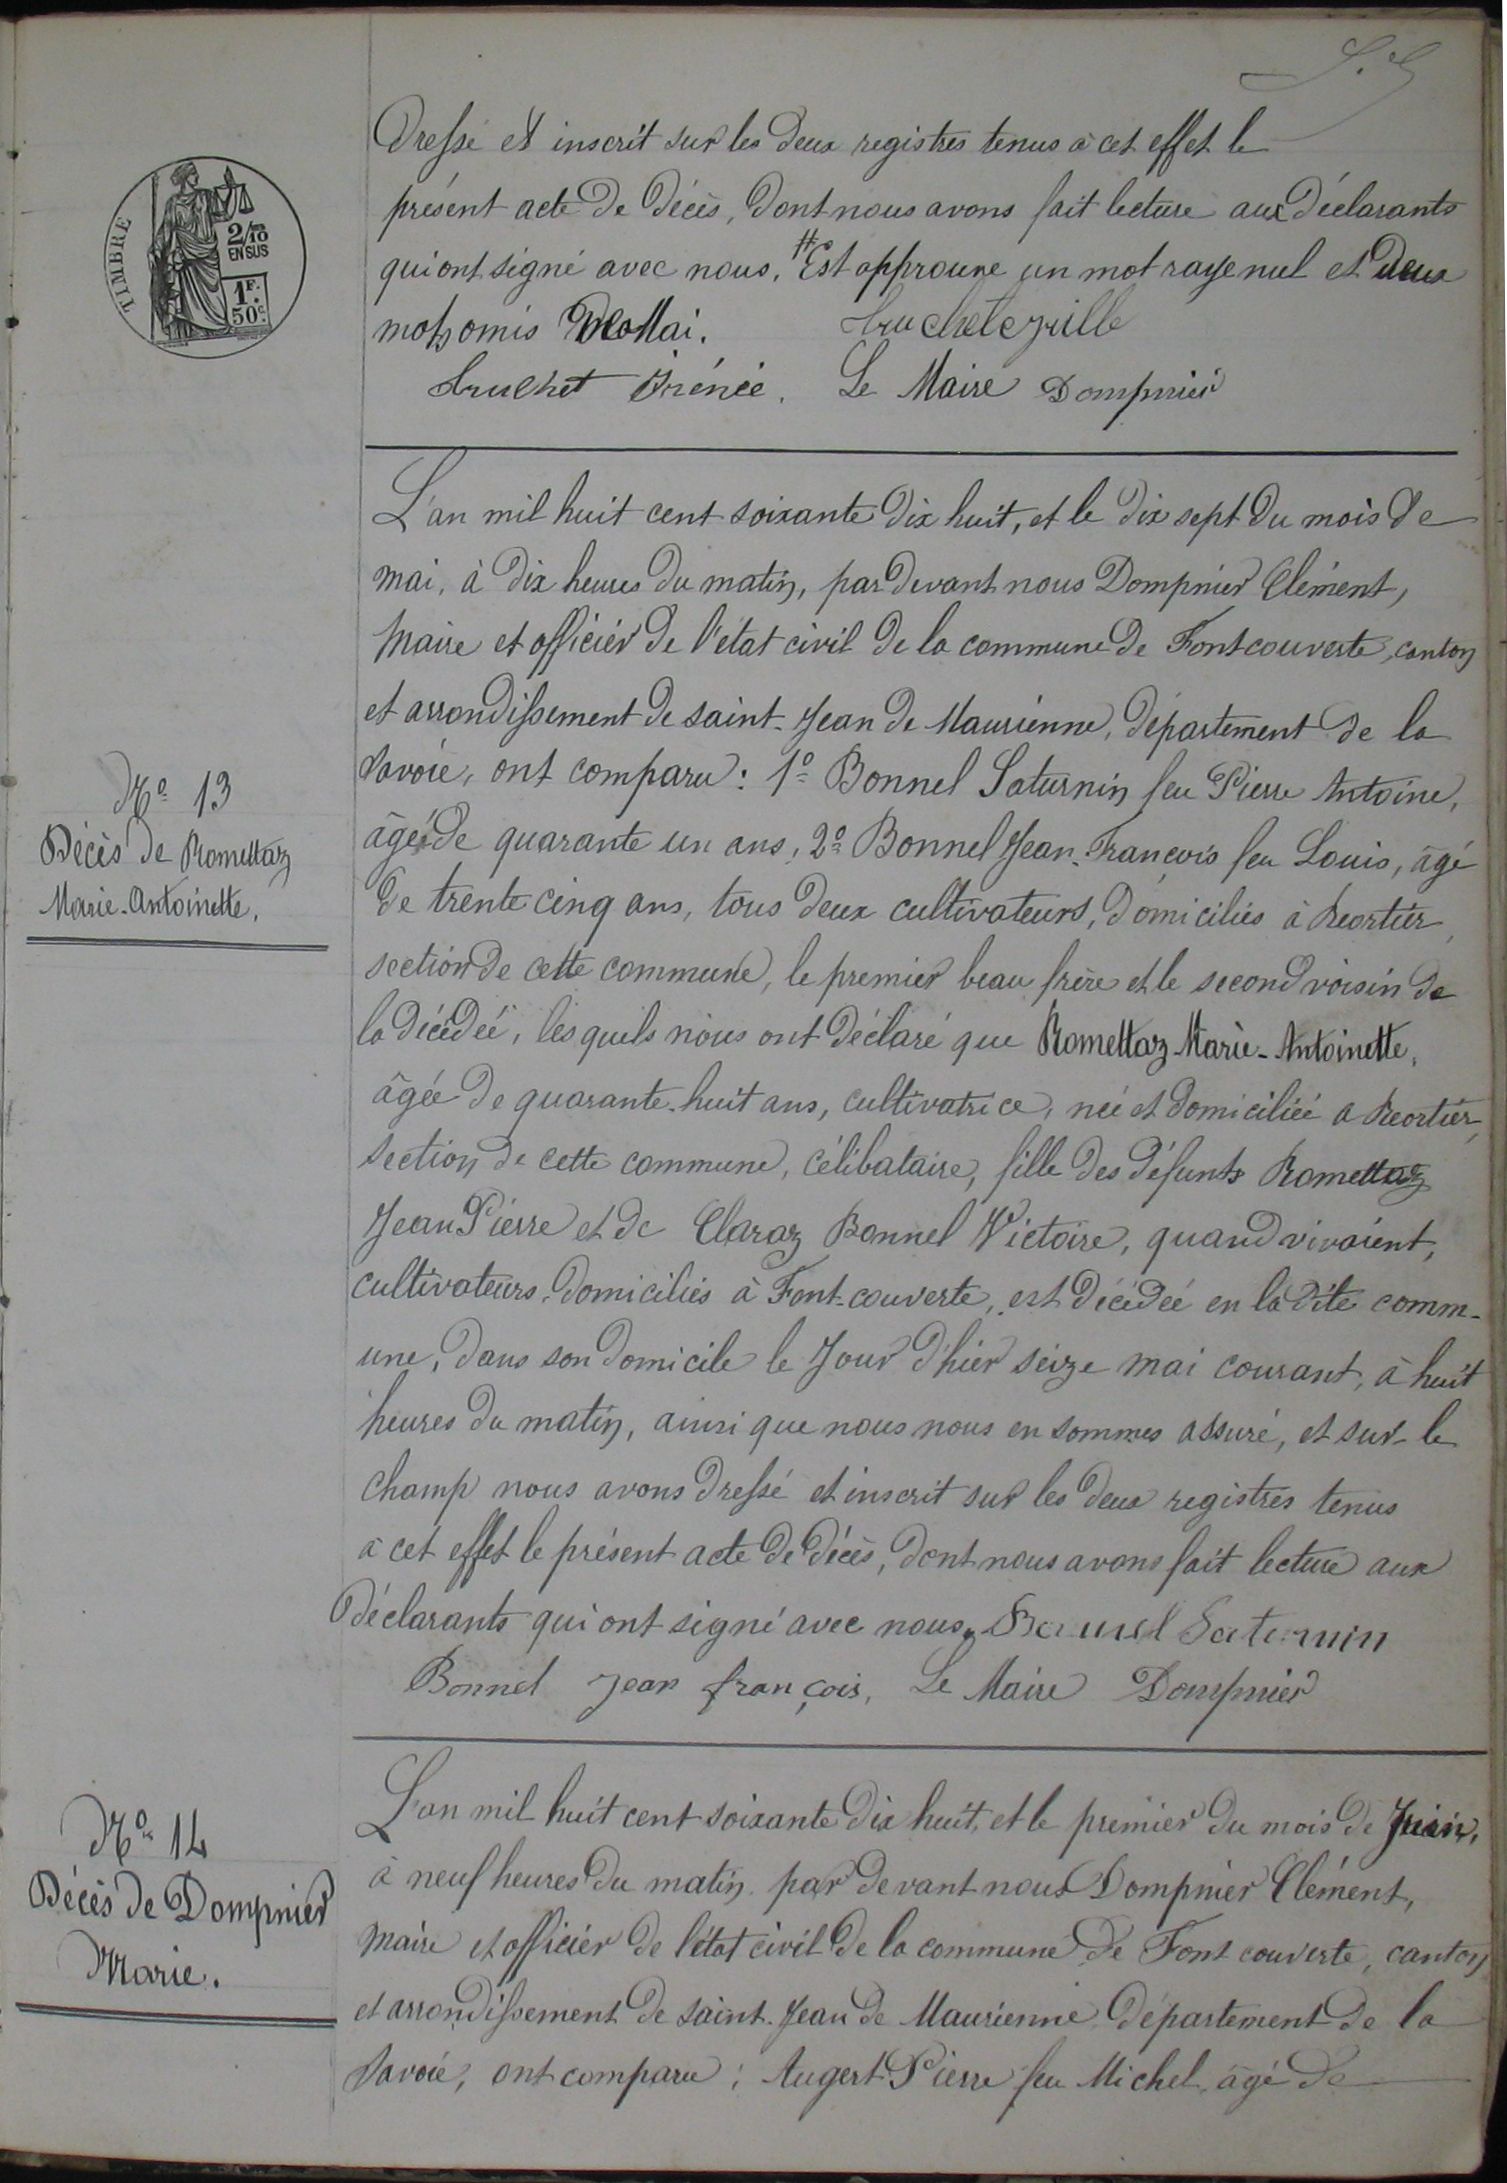 Dressé et inscrit sur les deux registres tenus à cet effet le
présent acte de décès, dont nous avons fait lecture aux déclarants
qui ont signé avec nous. # Est approuve un mot raye nul et deux
mots omis
Le Maire Dompnier
TIMBRE
2/10
EN SUS
1F.
50c.
L'an mil huit cent soixante dix huit, et le dix sept du mois de
mai, à dix heures du matin, par devant nous Dompnier Clément,
Maire et officier de l'état civil de la commune de Fontcouverte, canton
et arrondissement de saint-Jean de Maurienne, département de la
Savoie, ont comparu : 1º Bonnel Saturnin feu Pierre Antoine,
âgé de quarante un ans, 2º Bonnel Jean-François feu Louis, âgé
de trente cinq ans, tous deux cultivateurs, domiciliés à Reortier,
section de cette commune, le premier beau frère et le second voisin de
la décédée, lesquels nous ont déclaré que Romettaz Marie-Antoinette,
âgée de quarante-huit ans, cultivatrice, née et domiciliée a Reortier,
section de cette commune, célibataire, fille des défunts Romettaz
Jean Pierre et de Claraz Bonnel Victoire, quand vivaient,
cultivateurs, domiciliés à Font-couverte, est décédée en la dite comm-
une, dans son domicile le Jour d'hier seize mai courant, à huit
heures du matin, ainsi que nous nous en sommes assuré, et sur-le
champ nous avons dressé et inscrit sur les deux registres tenus
à cet effet le présent acte de décès, dont nous avons fait lecture aux
déclarants qui ont signé avec nous. Bonnel Saturnin
Bonnel Jean françois, Le Maire Dompnier
Nº 13
Décès de Romettaz
Marie-Antoinette.
L'an mil huit cent soixante dix huit, et le premier du mois de Juin,
à neuf heures du matin, par devant nous Dompnier Clément,
maire et officier de l'état civil de la commune de Font couverte, canton
et arrondissement de saint-Jean de Maurienne, département de la
Savoie, ont comparu : Augert Pierre feu Michel, âgé de
Nº 14
Décès de Dompnier
Marie.